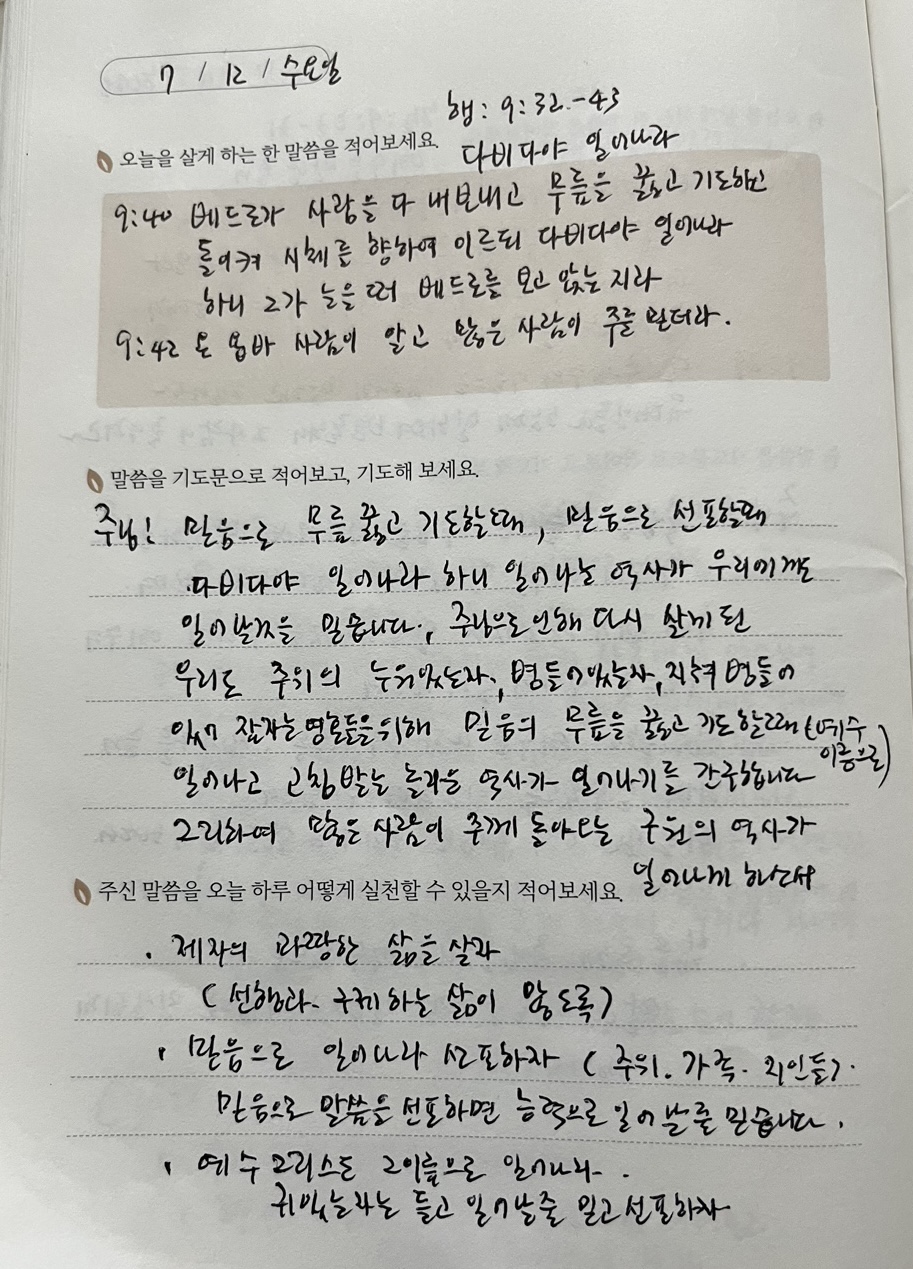 7 / 12 / 수요일
행: 9:32-43
오늘을 살게 하는 한 말씀을 적어보세요.
다비다야 일어나라
9:40 베드로가 사람을 다 내보내고 무릎을 꿇고 기도하고
돌이켜 시체를 향하여 이르되 다비다야 일어나라
하니 그가 눈을 떠 베드로를 보고 앉는지라
9:42 온 욥바 사람이 알고 많은 사람이 주를 믿더라.
말씀을 기도문으로 적어보고, 기도해 보세요.
주님! 믿음으로 무릎 꿇고 기도할때, 믿음으로 선포할때
다비다야 일어나라 하니 일어나는 역사가 우리에게도
일어날것을 믿습니다. 주님으로 인해 다시 살게 된
우리도 주위의 누워있는자, 병들어있는자, 지쳐 병들어
잠자는 영혼들을 위해 믿음의 무릎을 꿇고 기도할때 (예수
이름으로)
일어나고 고침 받는 놀라운 역사가 일어나기를 간구합니다
그리하여 많은 사람이 주께 돌아오는 구원의 역사가
일어나게 하소서
주신 말씀을 오늘 하루 어떻게 실천할 수 있을지 적어보세요.
· 제자의 마땅한 삶을 살자
(선행과 구제하는 삶이 많도록)
· 믿음으로 일어나라 선포하자 (주위. 가족. 지인들).
믿음으로 말씀을 선포하면 능력으로 일어날줄 믿습니다.
· 예수 그리스도 그이름으로 일어나라.
귀있는자는 듣고 일어날줄 믿고 선포하자